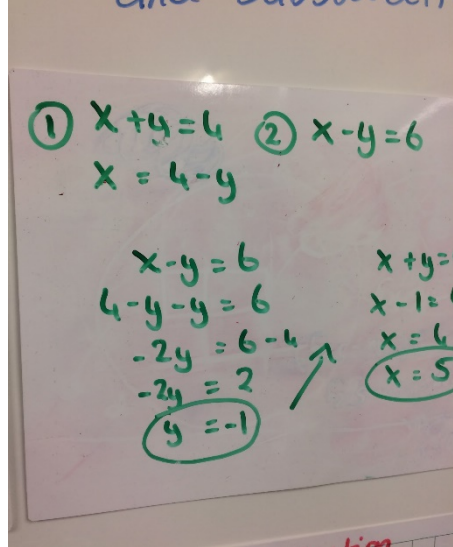 ① x + y = 4
② x - y = 6
x = 4 - y
x - y = 6
4 - y - y = 6
-2y = 6 - 4
-2y = 2
y = -1
x + y =
x - 1 =
x =
x = 5